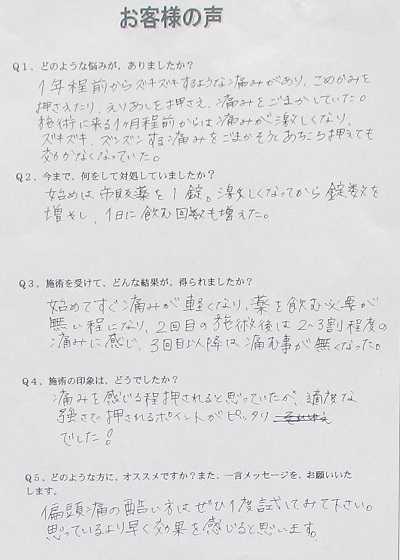 お客様の声
Q1、どのような悩みが、ありましたか?
1年程前からズキズキするような痛みがあり、こめかみを
押さえたり、えりあしを押さえ、痛みをごまかしていた。
施術に来る1ヶ月程前からは痛みが激しくなり、
ズキズキ、ズンズンする痛みをごまかそうとあちこち押えても
効かなくなっていた。
Q2、今まで、何をして対処していましたか?
始めは市販薬を1錠。激しくなってから錠数を
増やし、1日に飲む回数も増えた。
Q3、施術を受けて、どんな結果が、得られましたか?
始めてすぐ痛みが軽くなり、薬を飲む必要が
無い程になり、2回目の施術後は2~3割程度の
痛みに感じ、3回目以降は痛む事が無くなった。
Q4、施術の印象は、どうでしたか?
痛みを感じる程押されると思っていたが、適度な
強さで押されるポイントがピッタリ
でした!
Q5、どのような方に、オススメですか?また、一言メッセージを、お願いいた
します。
偏頭痛の酷い方はぜひ1度試してみて下さい。
思っているより早く効果を感じると思います。